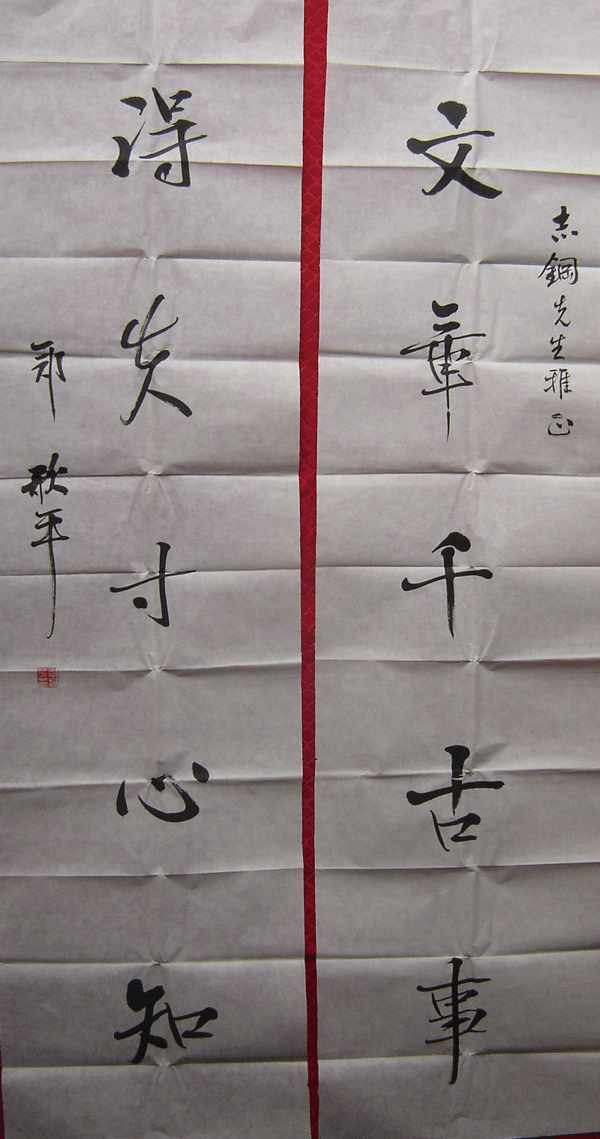 志鋼先生雅正
文章千古事
得失寸心知
平